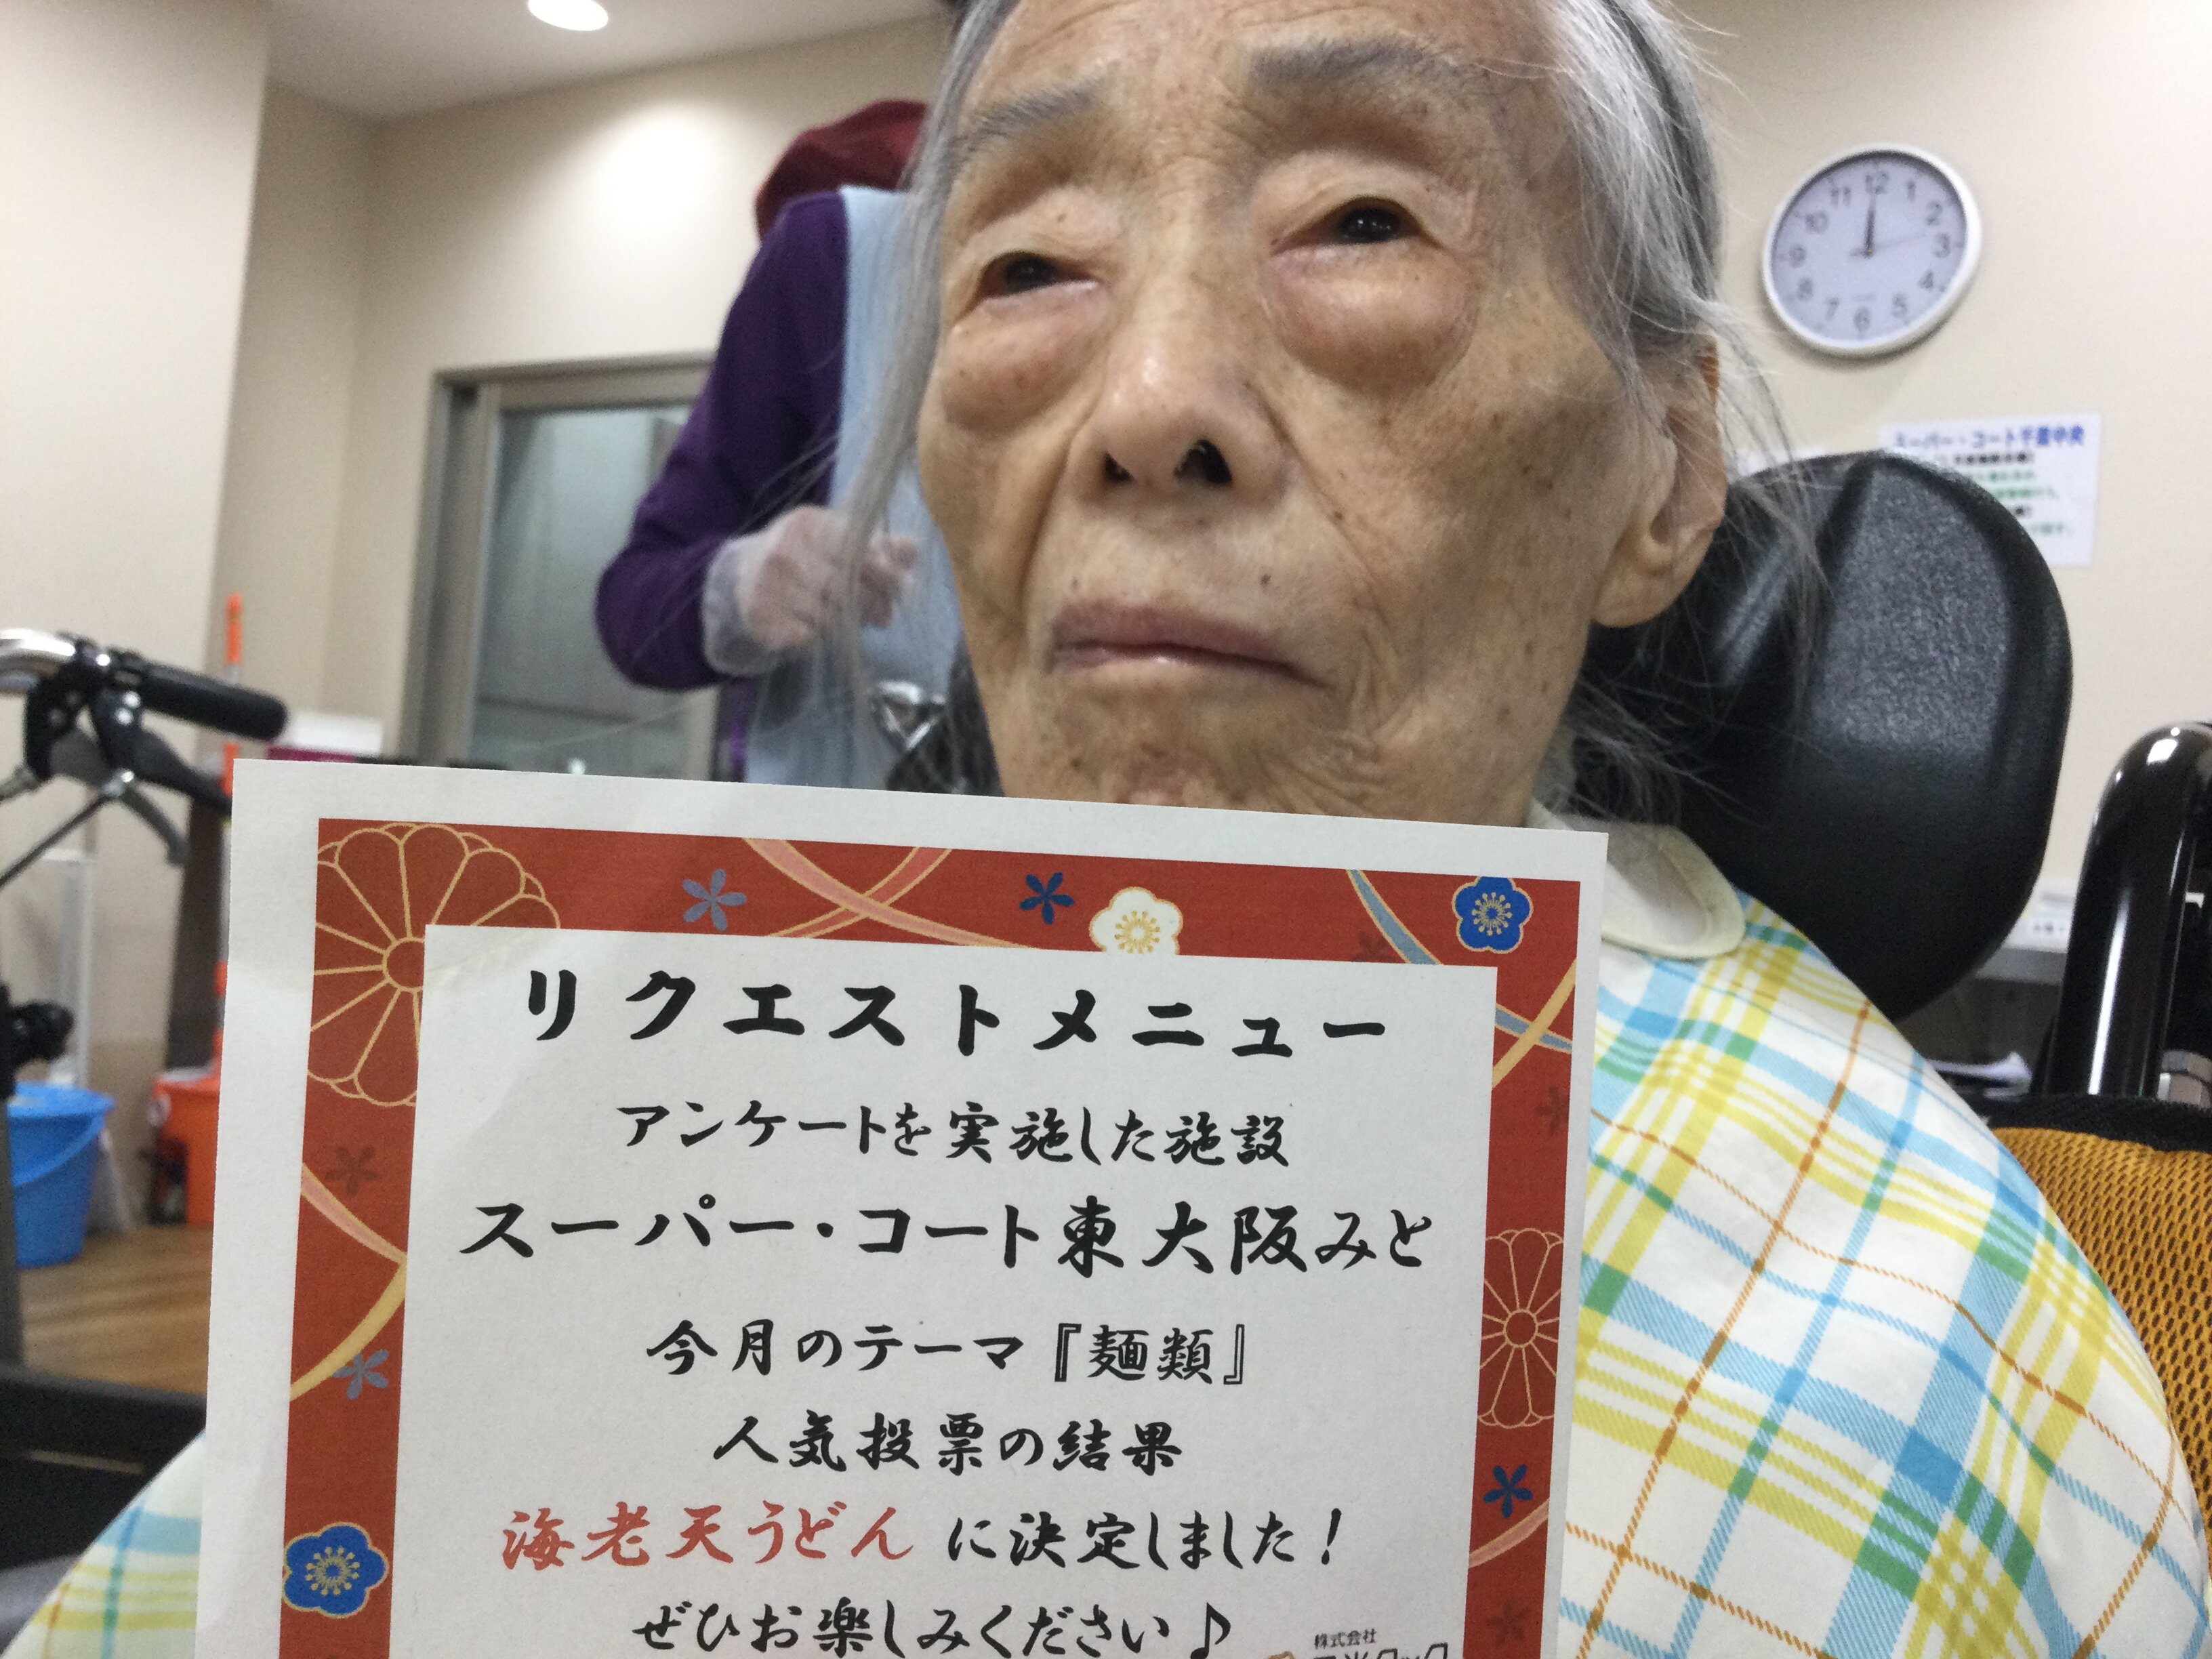 12
1
2
3
4
5
6
7
8
9
10
11
スーパー・コート千里中央
リクエストメニュー
アンケートを実施した施設
スーパー・コート東大阪みと
今月のテーマ『麺類』
人気投票の結果
海老天うどん に決定しました！
ぜひお楽しみください♪
株式会社